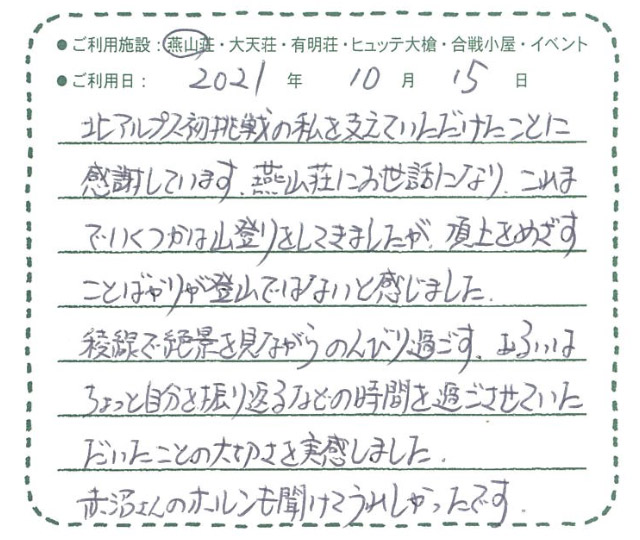 ●ご利用施設：燕山荘・大天荘・有明荘・ヒュッテ大槍・合戦小屋・イベント
●ご利用日： 2021 年 10 月 15 日
北アルプス初挑戦の私を支えていただけたことに
感謝しています。燕山荘にお世話になり、これま
でいくつかは山登りをしてきましたが、頂上をめざす
ことばかりが登山ではないと感じました。
稜線で絶景を見ながらのんびり過ごす、あるいは
ちょっと自分を振り返るなどの時間を過ごさせていた
だいたことの大切さを実感しました。
赤沼さんのホルンも聞けてうれしかったです。